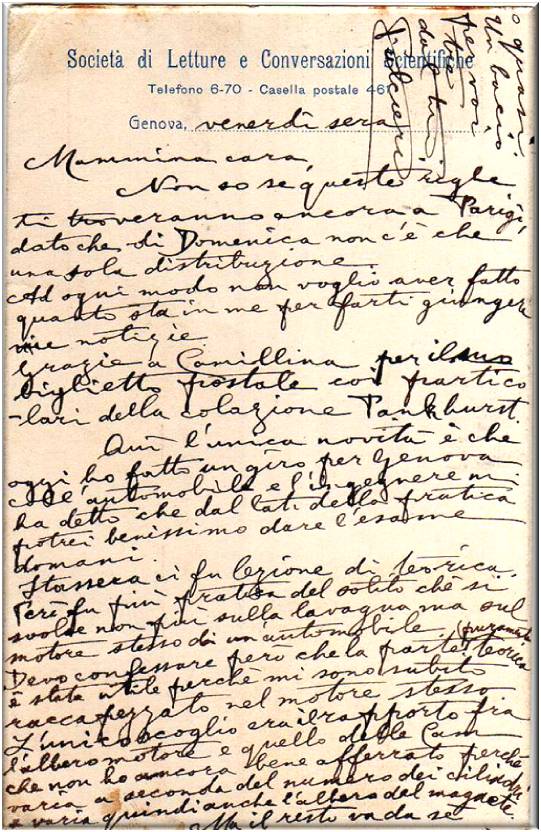 Società di Letture e Conversazioni Scientifiche
Telefono 6-70 - Casella postale 461
Genova, venerdì sera
Mammina cara,
Non so se queste righe
ti troveranno ancora a Parigi,
dato che di Domenica non c'è che
una sola distribuzione.
Ad ogni modo non voglio aver fatto
quanto sta in me per farti giungere
mie notizie.
Grazie a Camillina per il suo
biglietto postale coi partico
-lari della colazione Pankhurst.
Qui l'unica novità è che
oggi ho fatto un giro per Genova
coll'automobile e l'ingegnere mi
ha detto che dal lato della pratica
potrei benissimo dare l'esame
domani.
Stassera ci fu lezione di teorica.
Però fu più pratica del solito chè si
svolse non più sulla lavagna ma sul
motore stesso di un'automobile.
Devo confessare però che la parte (puramente teorica
è stata utile perchè mi sono subito
raccapezzato nel motore stesso
L'unico scoglio era il rapporto fra
l'albero motore e quello delle Cam
che non ho ancora bene afferrato perchè
varia a seconda del numero dei cilindri
e varia quindi anche l'albero del magnete
Ma il resto va da sè
o quasi.
Un bacio
per voi
tre
dal tuo